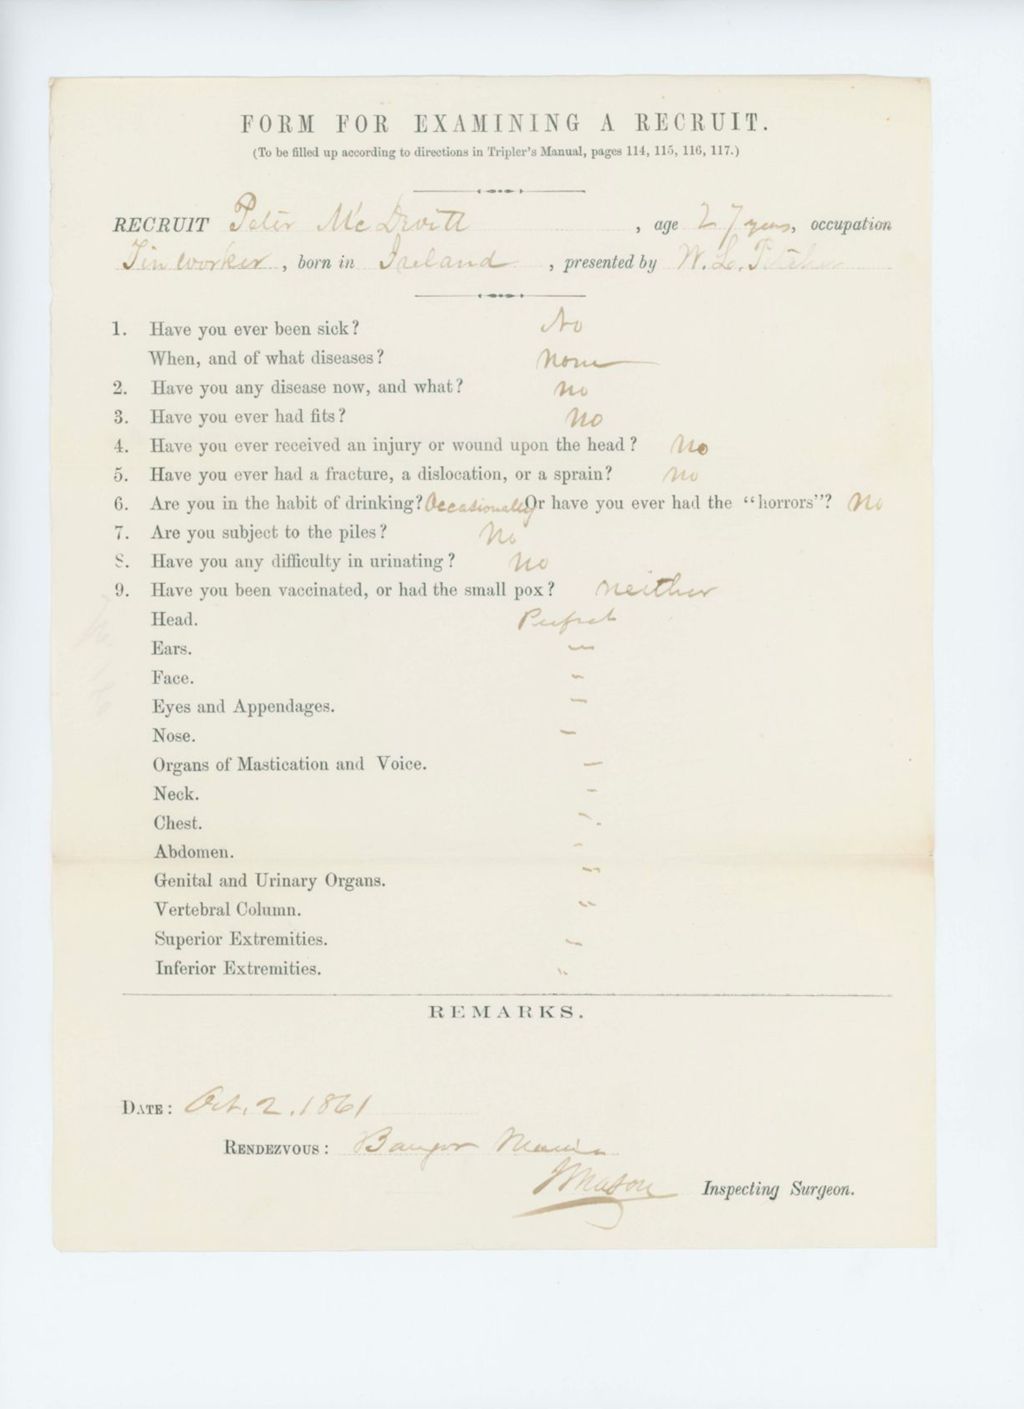 FORM FOR EXAMINING A RECRUIT.
(To be filled up according to directions in Tripler's Manual, pages 114, 115, 116, 117.)
RECRUIT Peter McDevitt , age 27 years, occupation
Tin worker , born in Ireland , presented by W. L. Pitcher
1. Have you ever been sick? No
When, and of what diseases? None
2. Have you any disease now, and what? No
3. Have you ever had fits? No
4. Have you ever received an injury or wound upon the head? No
5. Have you ever had a fracture, a dislocation, or a sprain? No
6. Are you in the habit of drinking? Occasionally Or have you ever had the "horrors"? No
7. Are you subject to the piles? No
8. Have you any difficulty in urinating? No
9. Have you been vaccinated, or had the small pox? neither
Head. Perfect
Ears. "
Face. "
Eyes and Appendages. "
Nose. "
Organs of Mastication and Voice. "
Neck. "
Chest. "
Abdomen. "
Genital and Urinary Organs. "
Vertebral Column. "
Superior Extremities. "
Inferior Extremities. "
REMARKS.
DATE: Oct. 2, 1861
RENDEZVOUS: Bangor Maine
Mason Inspecting Surgeon.